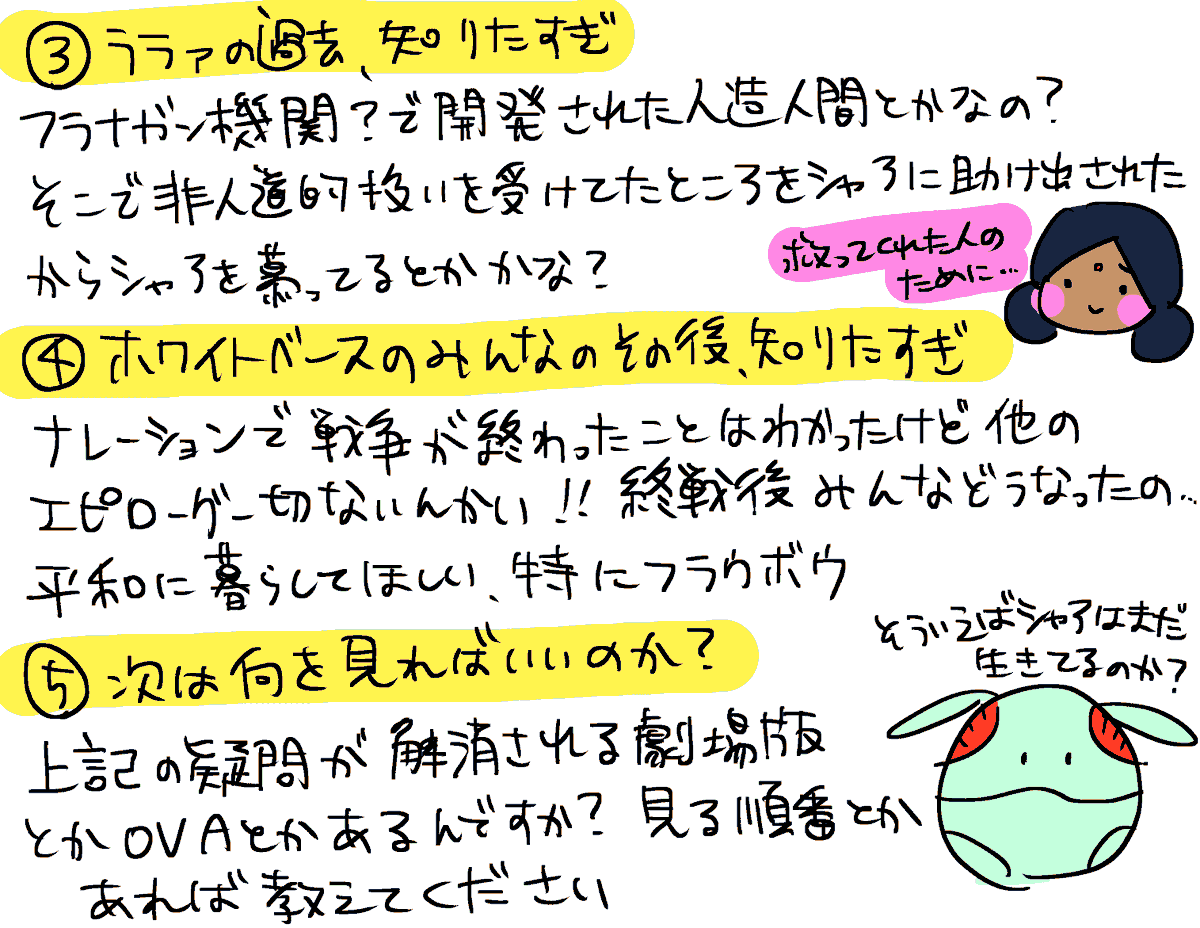 ③ララァの過去、知りたすぎ
フラナガン機関？で開発された人造人間とかなの？
そこで非人道的扱いを受けてたところをシャアに助け出された
からシャアを慕ってるとかかな？
救ってくれた人の
ために…
④ホワイトベースのみんなのその後、知りたすぎ
ナレーションで戦争が終わったことはわかったけど他の
エピローグ一切ないんかい!! 終戦後みんなどうなったの…
平和に暮らしてほしい、特にフラウボウ
そういえばシャアはまだ
生きてるのか？
⑤次は何を見ればいいのか？
上記の疑問が解消される劇場版
とかOVAとかあるんですか？見る順番とか
あれば教えてください